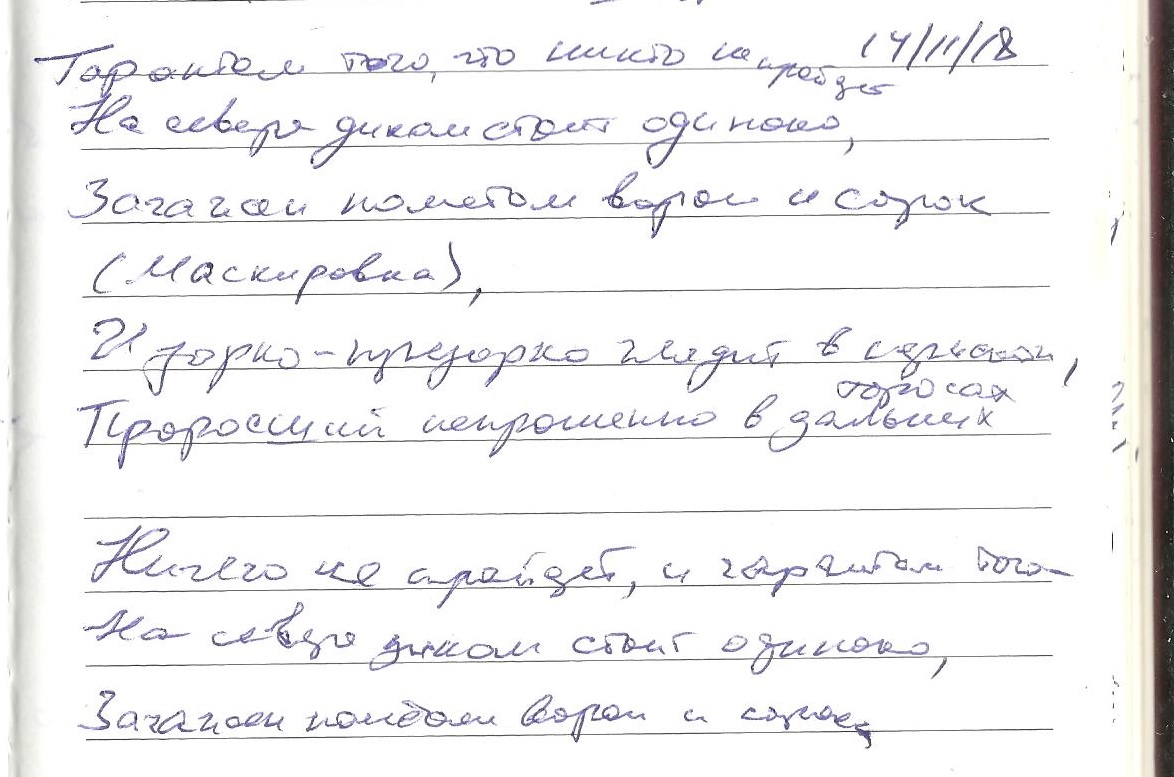 Гарантом того, что никто не пройдет 14/11/18
На севере диком стоит одиноко,
Загажен пометом ворон и сорок
(Маскировка),
И зорко-презорко глядит в
Проросший непрошенно в дальних торосах
Ничего не пройдет, и гарантом того
На севере диком стоит одиноко,
Загажен пометом ворон и сорок,